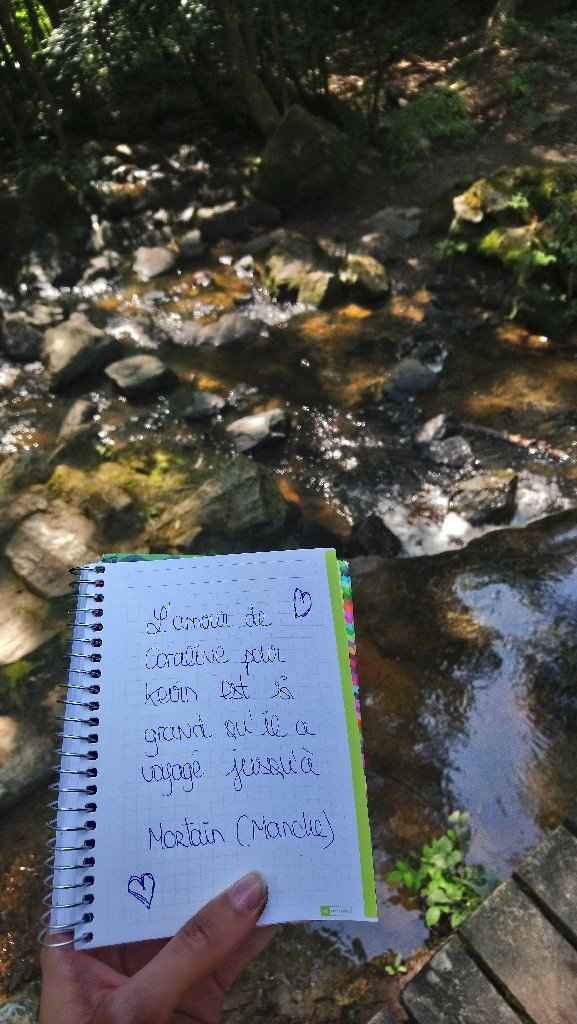 L'amour de
Coralive pour
kevin est si
grand qu'il a
voyagé jusqu'à
Mortain (Manche)